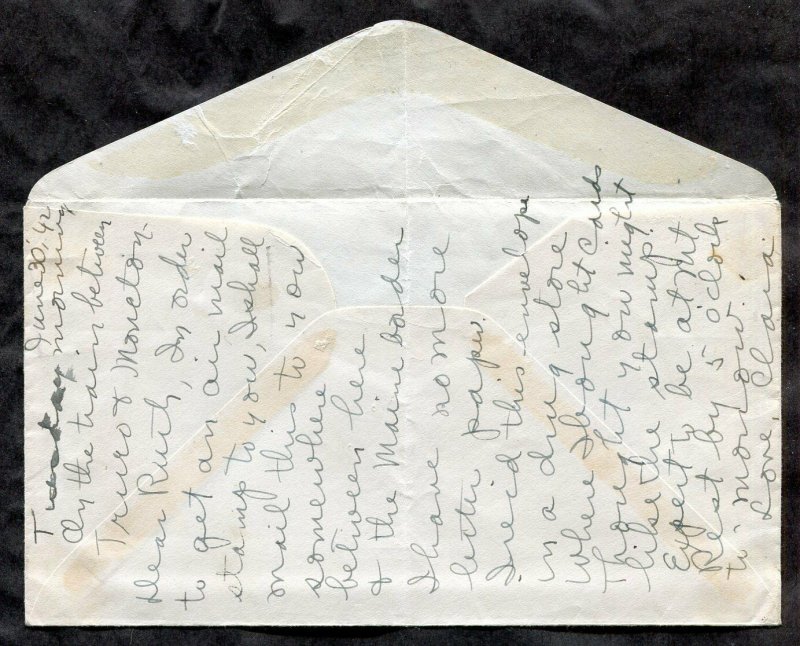 Tuesday June 30, '42
morning
On the train between
Truro & Moncton.
Dear Ruth, In order
to get an air mail
stamp to you, I shall
mail this to you
somewhere
between here
& the Maine border
I have no more
letter paper.
I rec'd this envelope
in a drug store
where I bought cards
Thought you might
like the stamp.
Expect to be at Mt
Rest by 5 o'clock
to-morrow.
Love, Clara.